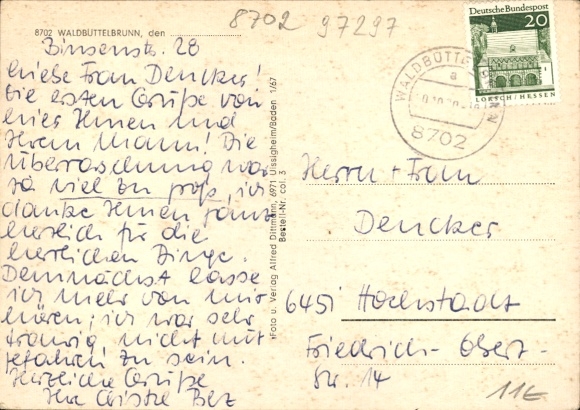 8702 97297
8702 WALDBÜTTELBRUNN, den
Binsenstr. 28
Liebe Frau Dencker!
Die ersten Grüße von
hier Ihnen und
Ihrem Mann! Die
Überraschung war
so viel zu groß, ich
danke Ihnen ganz
herzlich für die
herrlichen Dinge.
Demnächst lasse
ich mehr von mir
hören; ich war sehr
traurig, nicht mit
gefahren zu sein.
Herzliche Grüße
Ihre
Foto u. Verlag Alfred Dittmann, 6971 Uissigheim/Baden 1/67
Bestell-Nr. col. 3
Deutsche Bundespost
20
LORSCH/HESSEN
WALDBÜTTELBRUNN
a
8702
Herrn + Frau
Dencker
6451 Hochstadt
Friedrich-Ebert-
Str. 14
11E